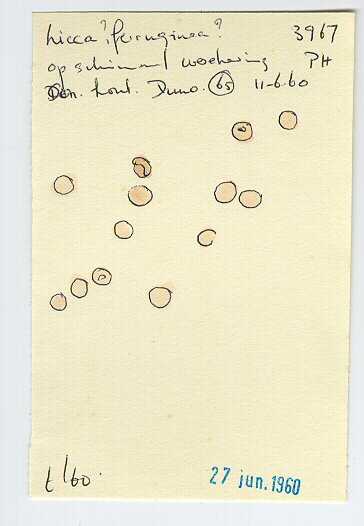 Licea? ferruginea? 3967
op schimmel woekering PH
Den. hout. Duno. 65 11-6-60
t/60.
27 jun. 1960